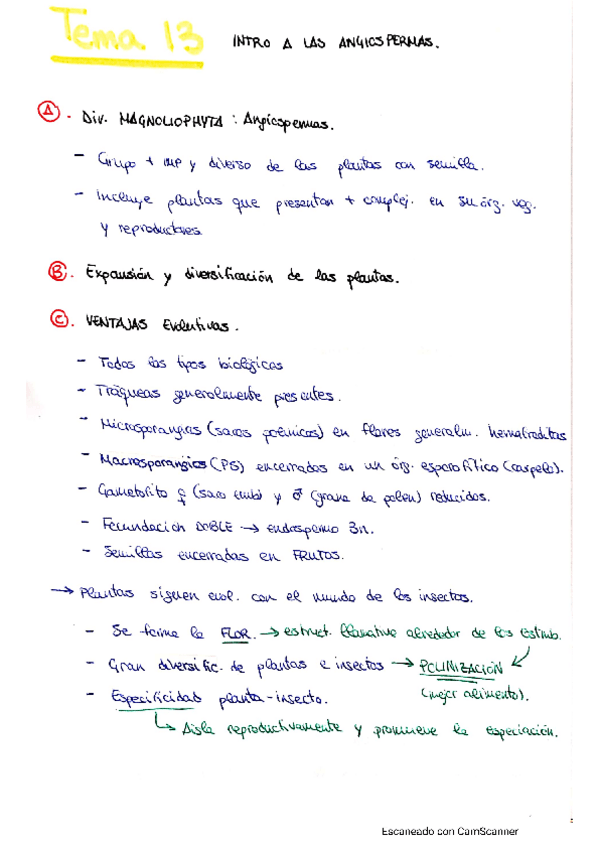 Tema 13 INTRO A LAS ANGIOSPERMAS.
A. Div. MAGNOLIOPHYTA: Angiospermas.
- Grupo + IMP y diverso de las plantas con semilla.
- Incluye plantas que presentan + complej. en su órg. veg.
y reproductores
B. Expansión y diversificación de las plantas.
C. VENTAJAS Evolutivas.
- Todos los tipos biológicos
- Tráqueas generalmente presentes.
- Microsporangios (sacos polínicos) en flores generalm. hermafroditas
- Macrosporangios (PS) encerrados en un órg. esporofítico (carpelo).
- Gametofito ♀ (saco emb) y ♂ (grano de polen) reducidos.
- Fecundación DOBLE → endospermo 3n.
- Semillas encerradas en FRUTOS.
→ Plantas siguen evol. con el mundo de los insectos.
- Se forma la FLOR. → estruct. llamativa alrededor de los estrób.
- Gran diversific. de plantas e insectos → POLINIZACIÓN
(mejor alimento).
- Especificidad planta-insecto.
↳ Aisla reproductivamente y promueve la especiación.
Escaneado con CamScanner